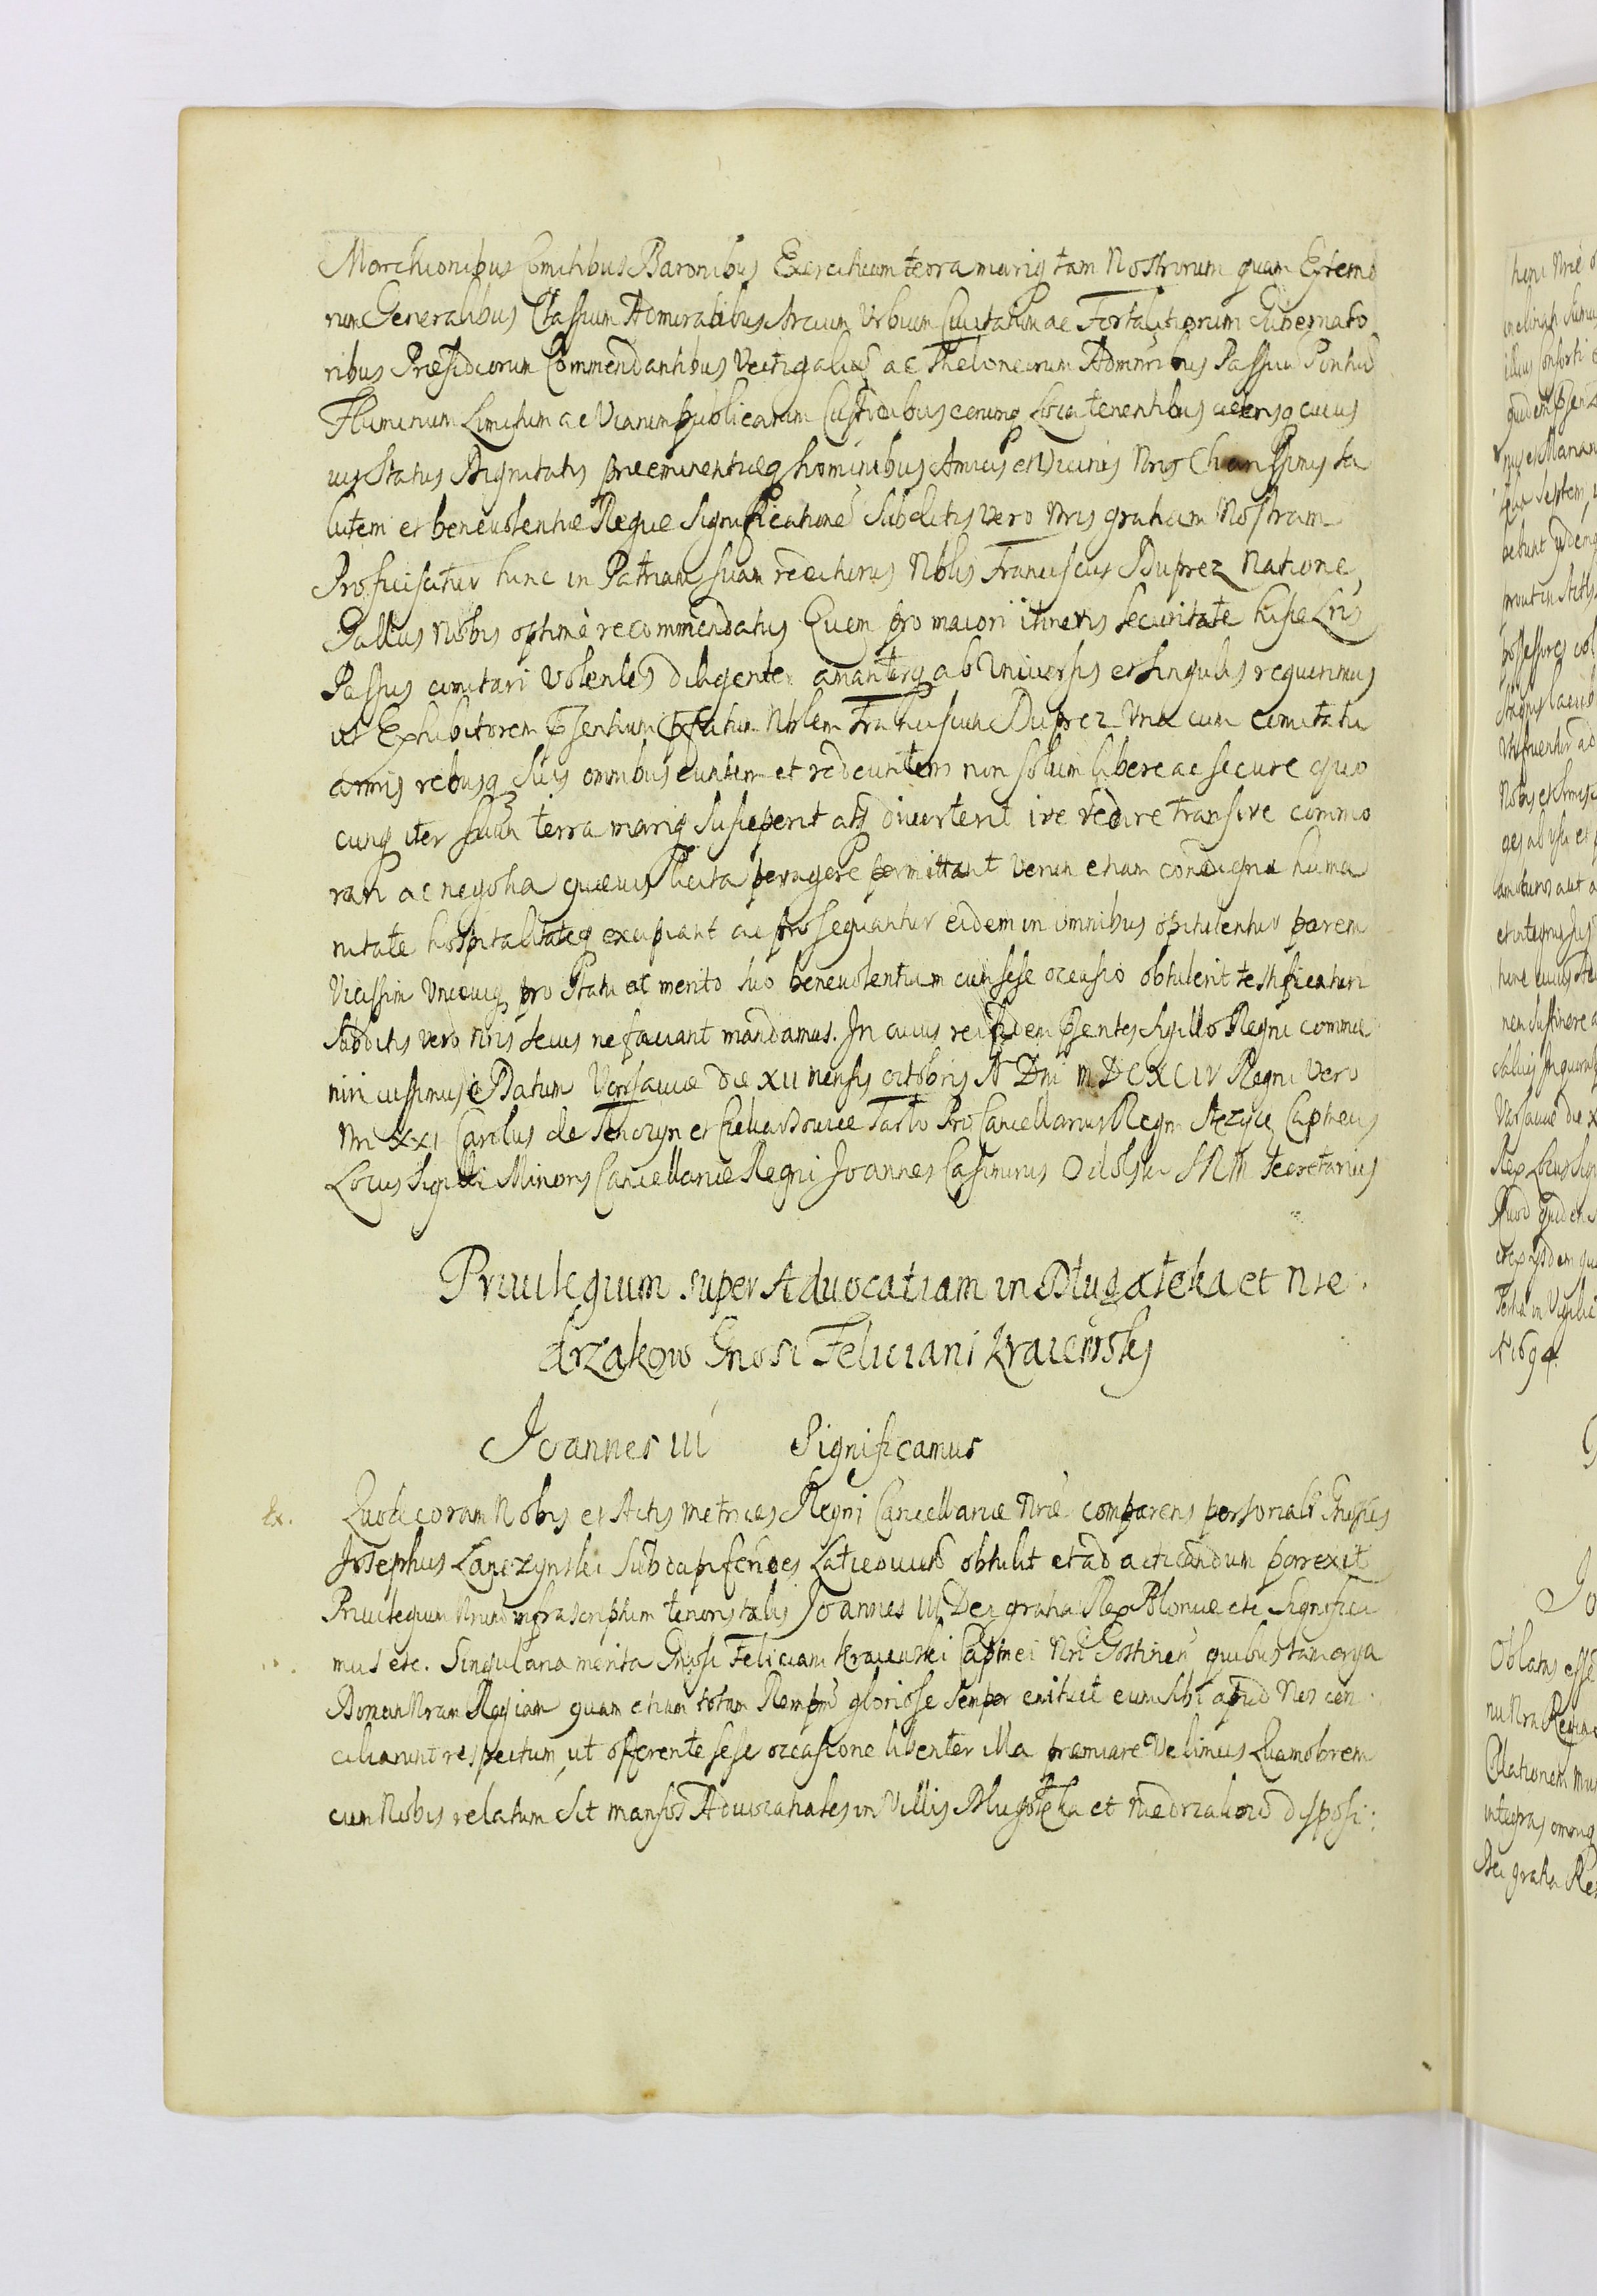 Marchionibus Comitibus Baronibus Exercituum terra mariq tam Nostrorum quam Extero
rum Generalibus Classium Admiralibus Arcium Urbium Civitatum ac Fortalitiorum Gubernato
ribus Præsidiorum Commendantibus Vectigaliu ac Theloneorum Admnribus Passuu Pontiu
Fluminum Limitum ac Viarum publicarum Custodibus eorumq Loca tenentibus cuius
uis Status Dignitatis præeminentiæq hominibus Amicis et Vicinis Nris Charissimis sa
lutem et beneuolentiæ Regiæ significatione Subditis vero Nris gratiam Nostram
Proficiscitur hinc in Patriam suam rediturus Nblis Franciscus Duprez Natione
Gallus Nobis optimè recommendatus Quem pro maiori itineris securitate hisce Lris
Passus comitari Volentes diligenter amanterq ab Universis et singulis requirimus
ut Exhibitorem psentium pfatum Nblem Franciscum Duprez Una cum comitatu
armis rebusq suis omnibus euntem et redeuntem non solum libere ac secure quo
cunq iter suum terra mariq susceperit atq diverterit ire redire transire commo
rari ac negotia quæuis licita peragere permittant verum etiam condigna huma
nitate hospitalitateq excipiant ac prosequantur eidem in omnibus opitulentur parem
Vicissim Unicuiq pro Statu et merito suo beneuolentiam cum sese occasio obtulerit testificaturi
Subditis vero Nris secus ne faciant mandamus. In cuius rei fidem psentes Sigillo Regni commu
niri iussimus Datum Varsauiæ die XII mensis octobris A Dni MDCXCIV Regni vero
Nri XXI Carolus de Tenczyn et Tarlo ProCancellarius Regni Capneus
Locus Sigilli Minoris Cancellariæ Regni Joannes Casimirus SRM Secretarius
Priuilegium super Aduocatiam in Długałęka et Nie.
drzakow Gnosi Feliciani Kraiewski
Joannes III Significamus
Ex. Quod coram Nobis et Actis Metrices Regni Cancellariæ Nræ comparens personalr Gnosus
Josephus Lączynski Subdapifer obtulit et ad acticandum porrexit
Priuilegium infrascriptum tenoris talis Joannes III Dei gratia Rex Poloniæ etc Significa
mus etc. Singularia merita Gnosi Feliciani Kraiewski Capnei Nri Gostinen quibus tam erga
Bonam Nram Regiam quam etiam totam Rempm gloriose semper enituit eum sibi apud Nos con
ciliarunt respectum, ut offerente sese occasione libenter illa præmiare Velimus Quamobrem
cum Nobis relatum sit mansos Aduocatiales in Villis Długołęka et Niedrzakowo disposi: